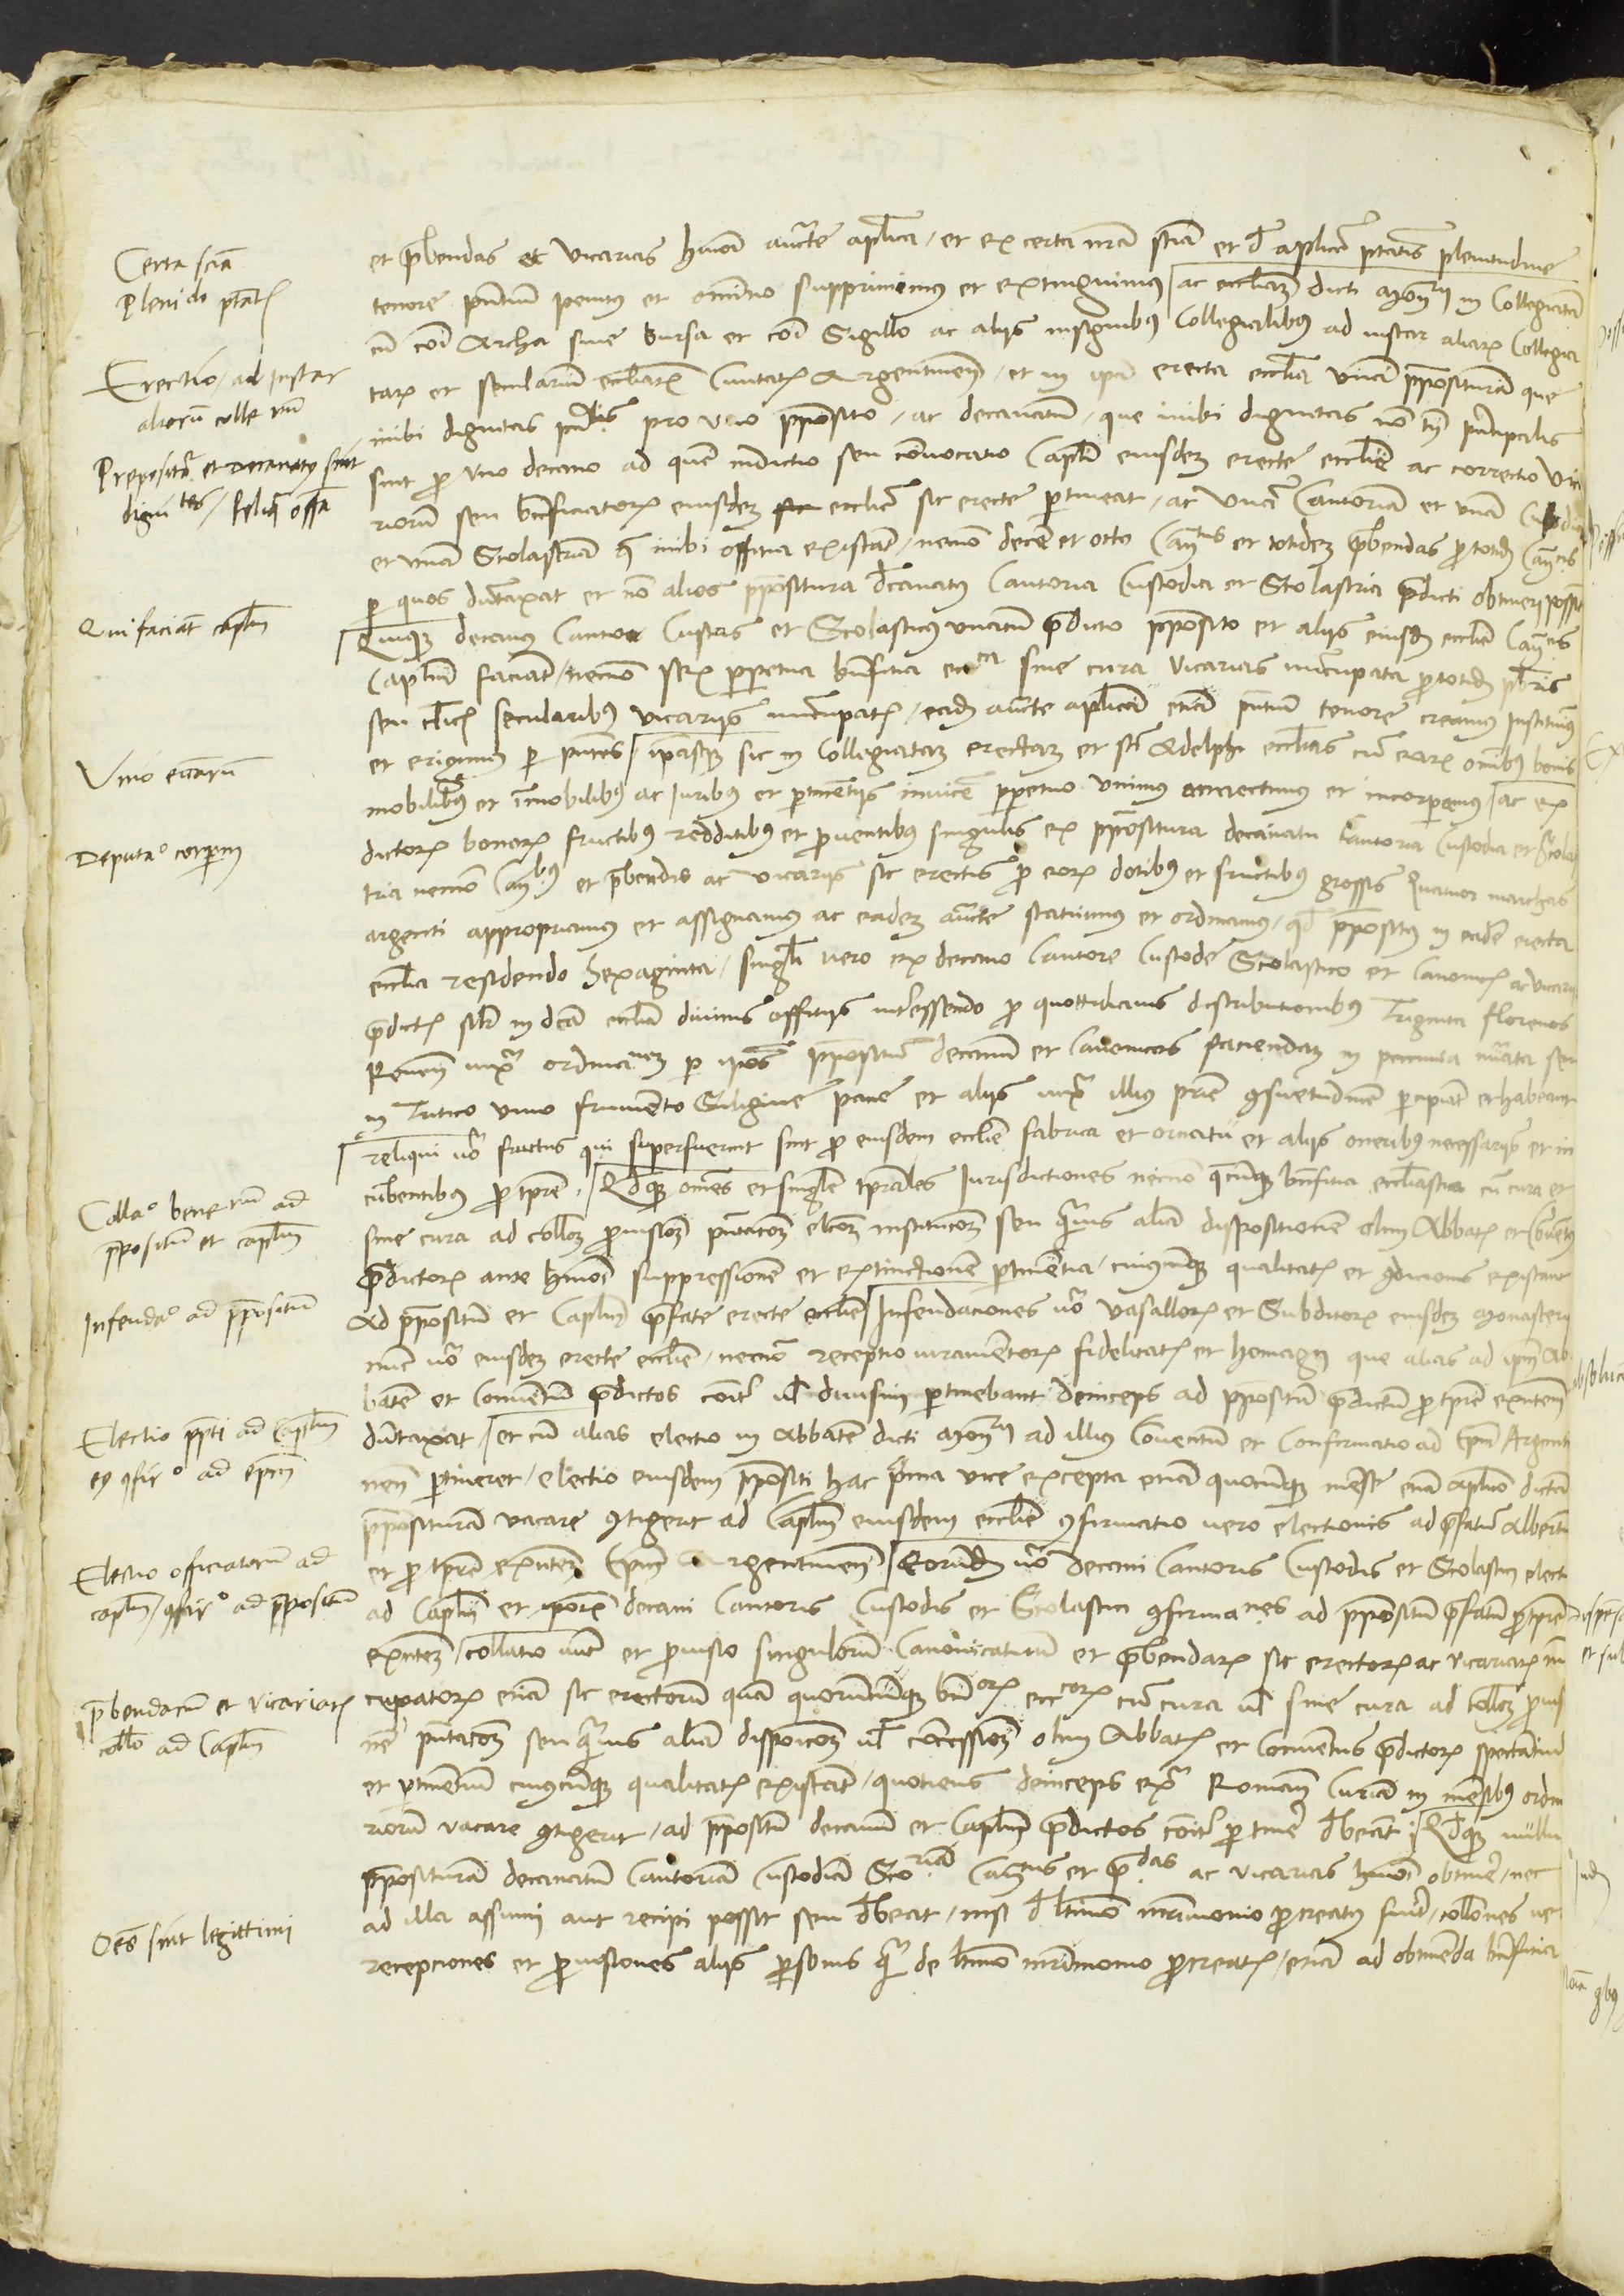 Certa scia
Pleni do ptatis
Erectio / ad instar
aliarum colle rum
Prepositus et Decanatus sunt
digni tes / reliqua offa
Qui faciant caplm
Unio eccarum
Deputao corporum
Collao bene rum ad
ppositum et caplm
Infeudao ad ppositum
Electio ppti ad Caplm
et confiro ad epm
Electio officiatorum ad
caplm / confiro ad ppositum
prebendarum et vicariarum
collo ad Caplm
Oes sint legittimi
et prebendas et vicarias hmoi aucte aplica / et ex certa nra scia et de aplice ptatis plenitudine
tenore pntium penitus et omnino supprimimus et extinguimus / ac eccliam dicti monrii in Collegiatam
cum coi Archa sive bursa et coi Sigillo ac aliis insignibus Collegialibus ad instar aliarum Collegia
tarum et secularium eccliarum Civitatis Argentinen / et in ipa erecta ecclia unam pposituram que
inibi dignitas pncipalis pro uno pposito / ac decanatum / que inibi dignitas non tn principalis
sint pro uno decano ad quem indictio seu convocatio Capli eiusdem erecte ecclie ac correctio vica
riorum seu bnficiatorum eiusdem ecclie sic erecte pertineat / ac unam Cantoriam et unam Custodiam
et unam Scolastriam que inibi officia existant / necnon decem et octo Canctus et totidem prebendas pro totidem Cancis
per quos dumtaxat et non alios ppositura decanatus Cantoria Custodia et Scolastria predicti obtineri possint
Quique decanus Cantor Custos et Scolasticus unacum predicto pposito et aliis eiusdem ecclie Cancis
Caplum faciant / necnon sex perpetua bnficia ecca sine cura vicarias nuncupata pro totidem pbris
seu clicis secularibus vicariis nuncupatis / eadem aucte aplica etiam pntium tenore creamus Instituimus
et erigimus per pntes / ipasque sic in Collegiatam erectam et sti Adelphi ecclias cum earum omnibus bonis
mobilibus et immobilibus ac Iuribus et pertinentiis invicem perpetuo unimus annectimus et incorporamus / ac ex
dictorum bonorum fructibus redditibus et proventibus singulis ex ppositura decanatu Cantoria Custodia et Scolas
tria necnon Canbus et prebendis ac vicariis sic erectis pro eorum dotibus et fructibus grossis Quatuor marchas
argenti appropriamus et assignamus ac eadem aucte statuimus et ordinamus / quod ppositus in eadem erecta
ecclia residendo sexaginta / singuli vero ex decano Cantore Custode Scolastico et Canonicis ac vicariis
predictis silr in dca ecclia divinis officiis interessendo pro quottidianis distributionibus Triginta florenos
Renen iuxta ordinanem per ipos ppositum decanum et Canonicos faciendam in pecunia nuata seu
in Tritico vino frumento Siligine pane et aliis iuxta illius prie consuetudinem percipiant et habeant
reliqui vero fructus qui superfuerint sint pro eiusdem ecclie fabrica et ornatu et aliis oneribus necessariis et in
cumbentibus pro tpre / Quodque omnes et singule tprales Iurisdictiones necnon quecunque bnficia ecclastica cum cura et
sine cura ad collom provisiom pntacom elcom instituom seu quamvis aliam dispositionem olim Abbatis et Conventus
predictorum ante hmoi suppressionem et extinctionem pertinentia / cuiuscunque qualitatis et condicionis existant
ad ppositum et Caplum prefate erecte ecclie / Infeudaciones vero vasallorum et Subditorum eiusdem Monasterii
nunc vero eiusdem erecte ecclie / necnon receptio iuramentorum fidelitatis et homagii que alias ad ipm Ab
batem et Conventum predictos coiter vel divisim pertinebant deinceps ad ppositum predictum pro tpre exntem
dumtaxat / et cum alias electio in Abbatem dicti monrii ad illius Conventum et Confirmatio ad Epm Argenti
nen pertineret / electio eiusdem ppositi hac prima vice excepta etiam quocunque mense etiam aplico dictam
pposituram vacare contigerit ad Caplum eiusdem ecclie confirmatio vero electionis ad prefatum Albertum
et pro tpre exntem Epm Argentinen / Eorundem vero decani Cantoris Custodis et Scolastici elect
ad Caplum et ipsorum decani Cantoris Custodis et Scolastici confirmanes ad ppositum prefatum pro tpre
exntem / collatio autem et provisio singulorum Canonicatuum et prebendarum sic erectorum ac vicariarum nun
cupatorum etiam sic erectorum quam quorumcunque bnorum ecccorum cum cura vel sine cura ad collom provis
nem pntacom seu quamvis aliam dispoicom vel concessiom olim Abbatis et Conventus predictorum spectantium
et pertinentium cuiuscunque qualitatis existant / quotiens deinceps extra Romanam Curiam in mensibus ordina
riorum vacare contigerit / ad ppositum decanum et Caplum predictos coiter pertinere debeat / Quodque nullus
pposituram decanatum Cantoriam Custodiam Scoriam Canctus et predas ac vicarias hmoi obtinere / nec
ad illa assumi aut recipi possit seu debeat / nisi de ltimo mrimonio procreatus fuerit / collones ve
recepciones et provisiones aliis personis quam de ltimo mrimonio procreatis / etiam ad obtinenda bnficia